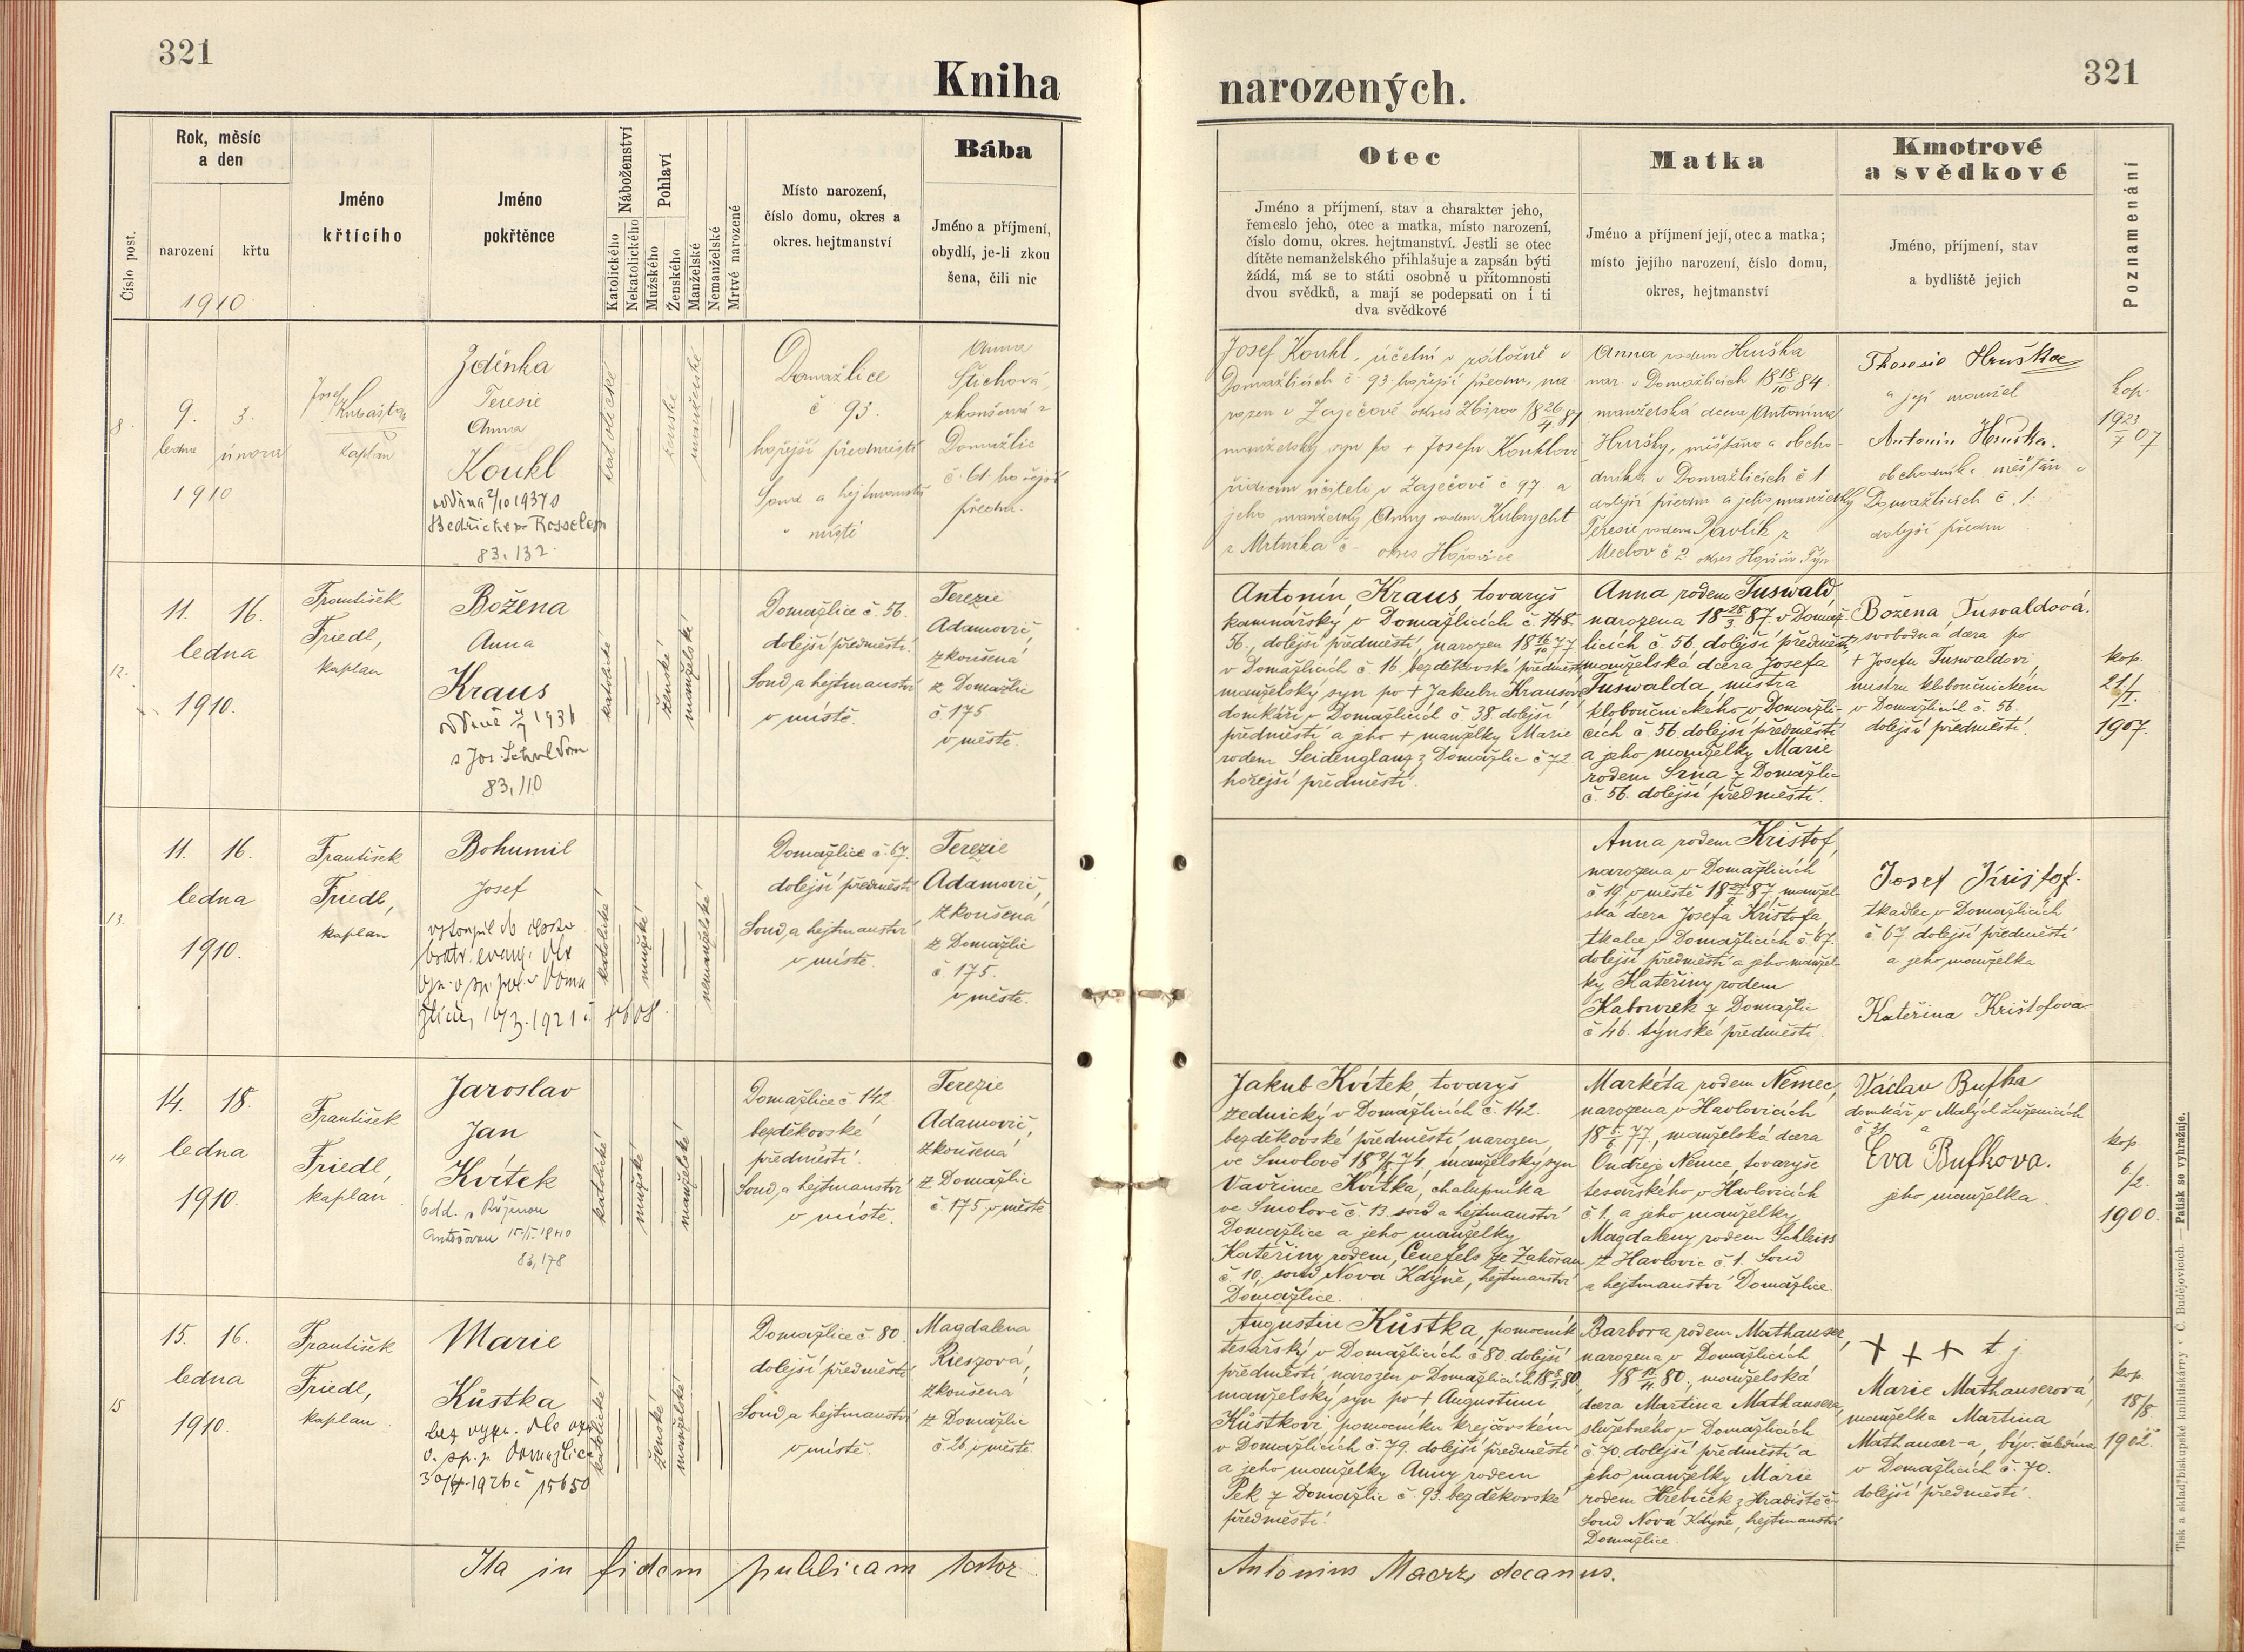 321
Kniha
narozených.
321
Číslo post.
Rok, měsíc
a den
narození
křtu
1910
Jméno
křtícího
Jméno
pokřtěnce
Náboženství
Katolického
Nekatolického
Pohlaví
Mužského
Ženského
Manželské
Nemanželské
Mrtvé narozené
Místo narození,
číslo domu, okres a
okres. hejtmanství
Bába
Jméno a příjmení,
obydlí, je-li zkou
šena, čili nic
Otec
Jméno a příjmení, stav a charakter jeho,
řemeslo jeho, otec a matka, místo narození,
číslo domu, okres. hejtmanství. Jestli se otec
dítěte nemanželského přihlašuje a zapsán býti
žádá, má se to státi osobně u přítomnosti
dvou svědků, a mají se podepsati on i ti
dva svědkové
Matka
Jméno a příjmení její, otec a matka;
místo jejího narození, číslo domu,
okres, hejtmanství
Kmotrové
a svědkové
Jméno, příjmení, stav
a bydliště jejich
Poznamenání
8.
9. 3.
ledna února
1910
Josef
kaplan
Zděnka
Teresie
Anna
Koukl
83, 132
katolické
ženské
manželské
Domažlice
č 93.
hořejší předměstí
Soud a hejtmanství
v místě
Anna
zkoušená z
Domažlic
č. 61. hořejší
předm.
Josef Koukl, účetní v záložně v
Domažlicích č. 93 hořejší předm, na-
rozen v Zaječově okres Zbirov 18 26/4 81
manželský syn po + Josefu Kouklovi
řídícím učiteli v Zaječově č 97 a
jeho manželky Anny rodem Kubrycht
z Mrtníka č - okres Hořovice
Anna rodem Hruška
nar v Domažlicích 18 18/10 84.
manželská dcera Antonína
Hrušky, měšťana a obcho-
dníka v Domažlicích č 1
dolejší předm a jeho manželky
Teresie rodem Pavlík z
č 2 okres Horšův Týn
Theresie Hruška
a její manžel
Antonín Hruška.
obchodník a měšťan v
Domažlicích č. 1.
dolejší předm
kop.
19 23/7 07
12.
11. 16.
ledna
1910.
František
Friedl,
kaplan
Božena
Anna
Kraus
83, 110
katolické
ženské
manželské
Domažlice č. 56.
dolejší předměstí.
Soud a hejtmanství
v místě.
Terezie
Adamovič,
zkoušená
z Domažlic
č. 175
v městě.
Antonín Kraus tovaryš
kamnářský v Domažlicích č. 148.
56., dolejší předměstí, narozen 18 16/10 77
v Domažlicích č. 16 bezděkovské předměstí
manželský syn po + Jakubu Krausovi
domkáři v Domažlicích č. 38 dolejší
předměstí a jeho + manželky Marie
rodem Seidenglanz z Domažlic č 72
hořejší předměstí.
Anna rodem Tuswald,
narozena 18 28/3 87 v Domaž-
licích č. 56. dolejší předměstí,
manželská dcera Josefa
Tuswalda, mistra
kloboučnického v Domažli-
cích č. 56 dolejší předměstí
a jeho manželky Marie
rodem Srna z Domažlic
č. 56. dolejší předměstí.
Božena Tuswaldová.
svobodná dcera po
+ Josefu Tuswaldovi,
mistru kloboučnickém
v Domažlicích č. 56.
dolejší předměstí.
kop.
21/I.
1907.
13.
11. 16.
ledna
1910.
František
Friedl,
kaplan
Bohumil
Josef
vystoupil do česko
bratr. evang. dle
vyn. o. sp. pol. v Doma
žlicích 16/3. 1921 č. 8608
katolické
mužské
nemanželské
Domažlice č. 67.
dolejší předměstí.
Soud a hejtmanství
v místě.
Terezie
Adamovič,
zkoušená
z Domažlic
č. 175.
v městě.
Anna rodem Krištof,
narozena v Domažlicích
č 19. v městě 18 87 manžel-
ská dcera Josefa Krištofa,
tkalce v Domažlicích č. 67.
dolejší předměstí a jeho manžel-
ky Kateřiny rodem
z Domažlic
č 46. týnské předměstí.
Josef Krištof.
tkadlec v Domažlicích
č 67. dolejší předměstí
a jeho manželka
Kateřina Krištofova
14
14. 18.
ledna
1910.
František
Friedl,
kaplan
Jaroslav
Jan
Kvítek
odd. s Růženou
Antošovou 1940
83, 178
katolické
mužské
manželské
Domažlice č. 142
bezděkovské
předměstí.
Soud a hejtmanství
v místě.
Terezie
Adamovič,
zkoušená
z Domažlic
č. 175 v městě
Jakub Kvítek, tovaryš
zednický v Domažlicích č. 142.
bezděkovské předměstí, narozen
ve Smolově 18 74, manželský syn
Vavřince Kvítka, chalupníka
ve Smolově č. 13. soud a hejtmanství
Domažlice a jeho manželky
Kateřiny rodem Cenefels ze Zahořan
č. 10, soud Nová Kdyně, hejtmanství
Domažlice.
Markéta rodem Němec,
narozena v Havlovicích
18 77, manželská dcera
Ondřeje Němce, tovaryše
tesařského v Havlovicích
č. 1. a jeho manželky
Magdaleny rodem Schleiss
z Havlovic č. 1. Soud
a hejtmanství Domažlice.
Václav Bufka
domkář v Malých Luženicích
č 31. a
Eva Bufkova.
jeho manželka
kop.
6/2.
1900.
15
15. 16.
ledna
1910.
František
Friedl,
kaplan
Marie
Kůstka
bez vyzn. dle
o. sp. p. Domažlice
30/4 1926 č 15650
katolické
ženské
manželské
Domažlice č 80
dolejší předměstí.
Soud a hejtmanství
v místě.
Magdalena
Rieszová,
zkoušená
z Domažlic
č. 26 v městě.
Augustin Kůstka, pomocník
tesařský v Domažlicích č 80. dolejší
předměstí, narozen v Domažlicích 18 80,
manželský syn po + Augustinu
Kůstkovi pomocníku krejčovském
v Domažlicích č. 79. dolejší předměstí
a jeho manželky Anny rodem
Pek z Domažlic č. 93. bezděkovské
předměstí.
Barbora rodem Mathauser,
narozena v Domažlicích
18 80., manželská
dcera Martina Mathausera,
služebného v Domažlicích
č 70. dolejší předměstí a
jeho manželky Marie
rodem Hřebíček z Hradiště č-
Soud Nová Kdyně, hejtmanství
Domažlice
+ + + t. j
Marie Mathauserová,
manželka Martina
Mathauser-a, býv. čeledína
v Domažlicích č. 70.
dolejší předměstí
kop.
18/8
1902.
Ita in fidem publicam testor
Antonius Maerz decanus.
Tisk a sklad biskupské knihtiskárny v Č. Budějovicích. — Patisk se vyhražuje.